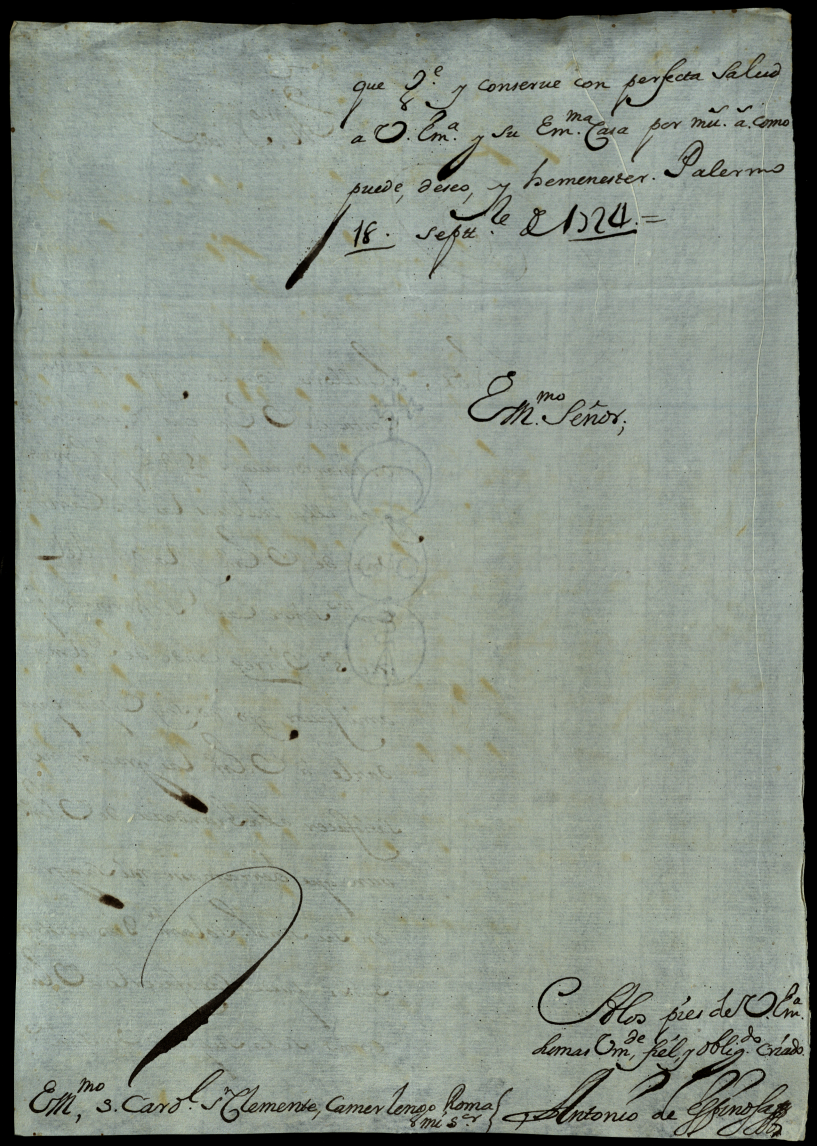 que g.e y conserve con perfecta Salud
a V. Em.a y su Em.ma Casa por mu.s a.s como
puede, deseo, y hemenester. Palermo
18. Sept.re de 1724.=
Em.mo Señor;
A los pies de V. Em.a
su mas Um.de fiel, y oblig.do criado
Antonio de Espinosa
Em.mo, s. Card.l S.n Clemente, Camerlengo Roma
mi s.r